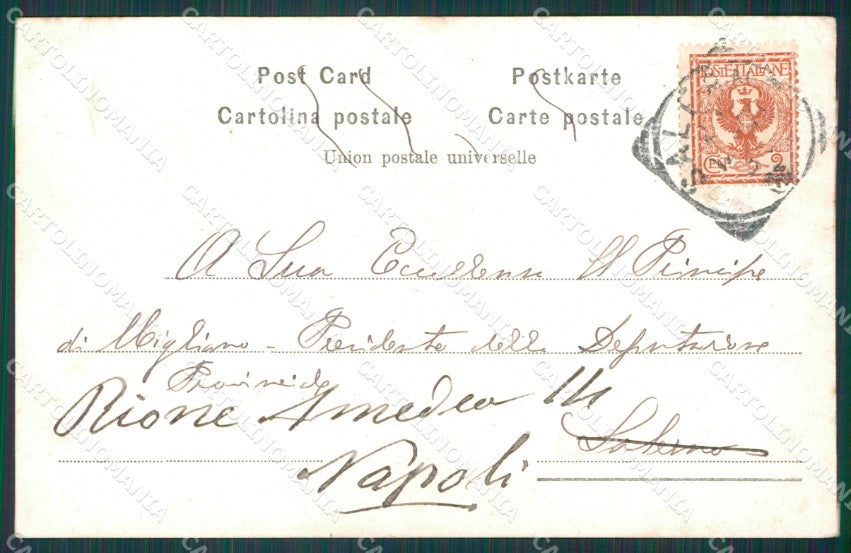 Post Card Postkarte
Cartolina postale Carte postale
Union postale universelle
POSTE ITALIANE
SALERNO
A Sua Eccellenza Il Principe
di Migliano - Presidente della Deputazione
Provinciale
Rione Amedeo 14
Salerno
Napoli
CARTOLINOMANIA